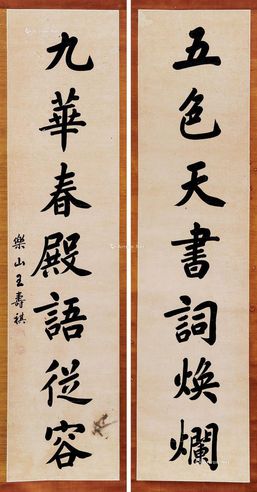 五色天書詞煥爛
九華春殿語從容
樂山王壽祺